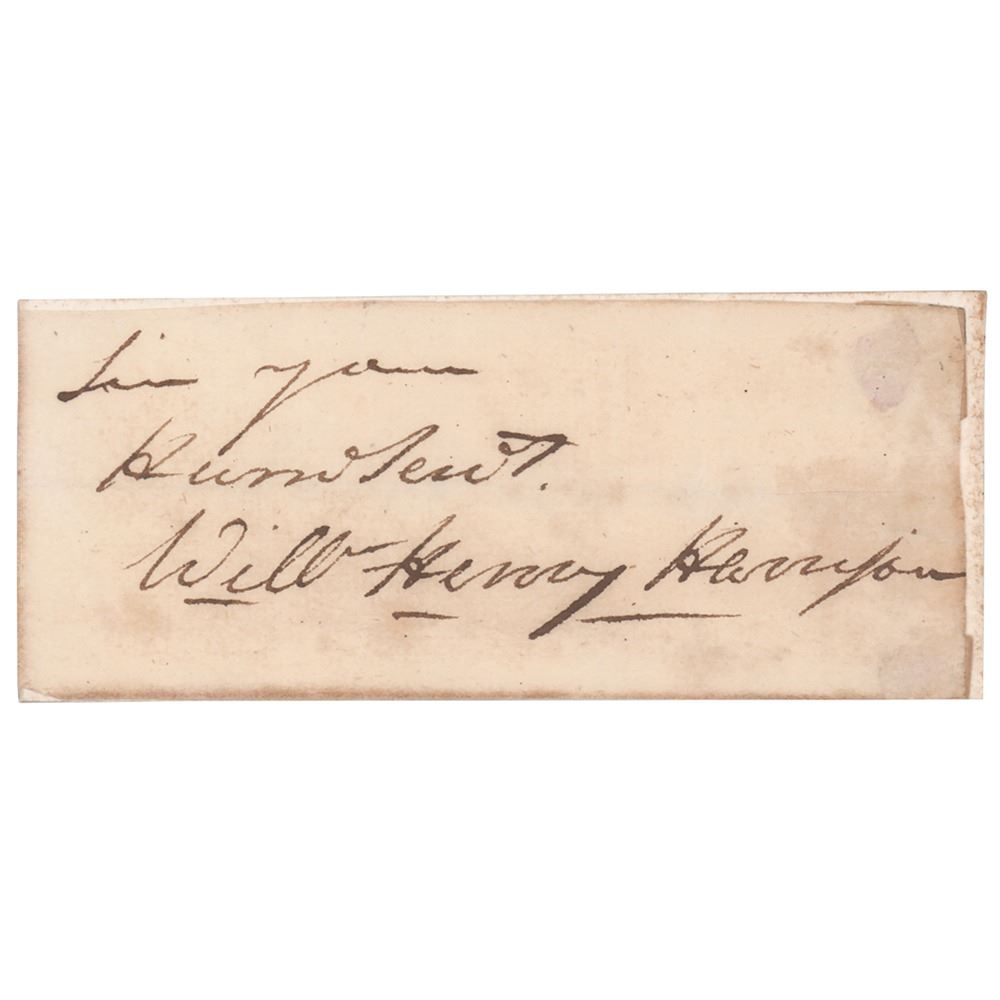 Sir your
Hum Servt.
Willm Henry Harrison